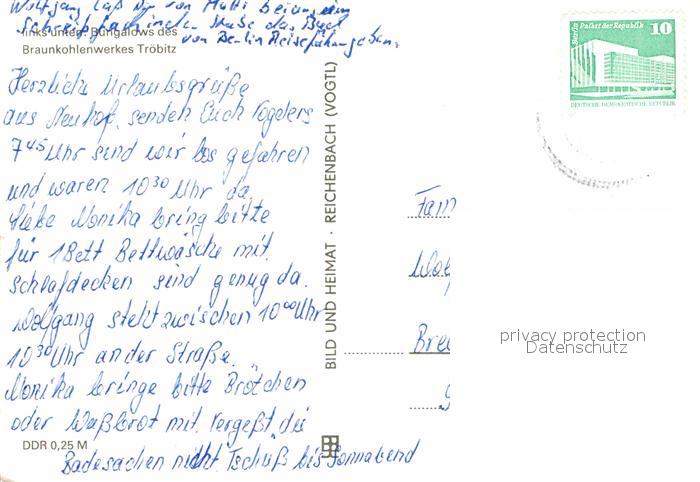 Wolfgang laß Dir von Mutti
Schreibt
links unten: Bungalows des
von Berlin Reiseführer geben.
Braunkohlenwerkes Tröbitz
Herzliche Urlaubsgrüße
aus Neuhof, senden Euch Vogelers
7⁴⁵ Uhr sind wir los gefahren
und waren 10³⁰ Uhr da.
Liebe Monika bring bitte
für 1 Bett Bettwäsche mit.
Schlafdecken sind genug da.
Wolfgang steht zwischen 10⁰⁰ Uhr
10³⁰ Uhr an der Straße.
Monika bringe bitte Brötchen
oder Weißbrot mit. Vergeßt die
Badesachen nicht. Tschüß bis Sonnabend
DDR 0,25 M
BILD UND HEIMAT · REICHENBACH (VOGTL)
Berlin Palast der Republik
10
DEUTSCHE DEMOKRATISCHE REPUBLIK
Fam
privacy protection
Datenschutz